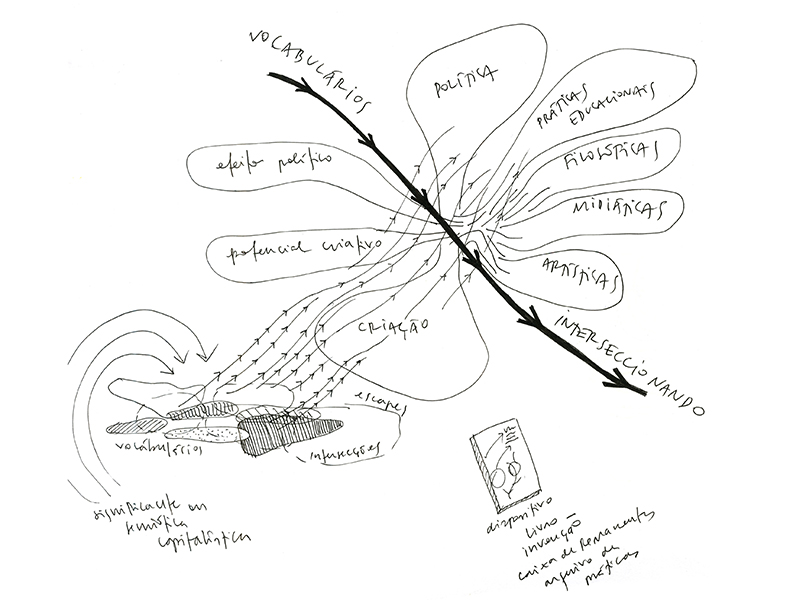 VOCABULÁRIOS
POLÍTICA
PRÁTICAS
EDUCACIONAIS
FILOSÓFICAS
MIDIÁTICAS
ARTÍSTICAS
efeito político
potencial criativo
CRIAÇÃO
INTERSECCIONANDO
escapes
vocabulários
intersecções
significante ou
semiótica
capitalística
dispositivo
livro –
invenção
caixa de ferramentas
arquivo de
práticas